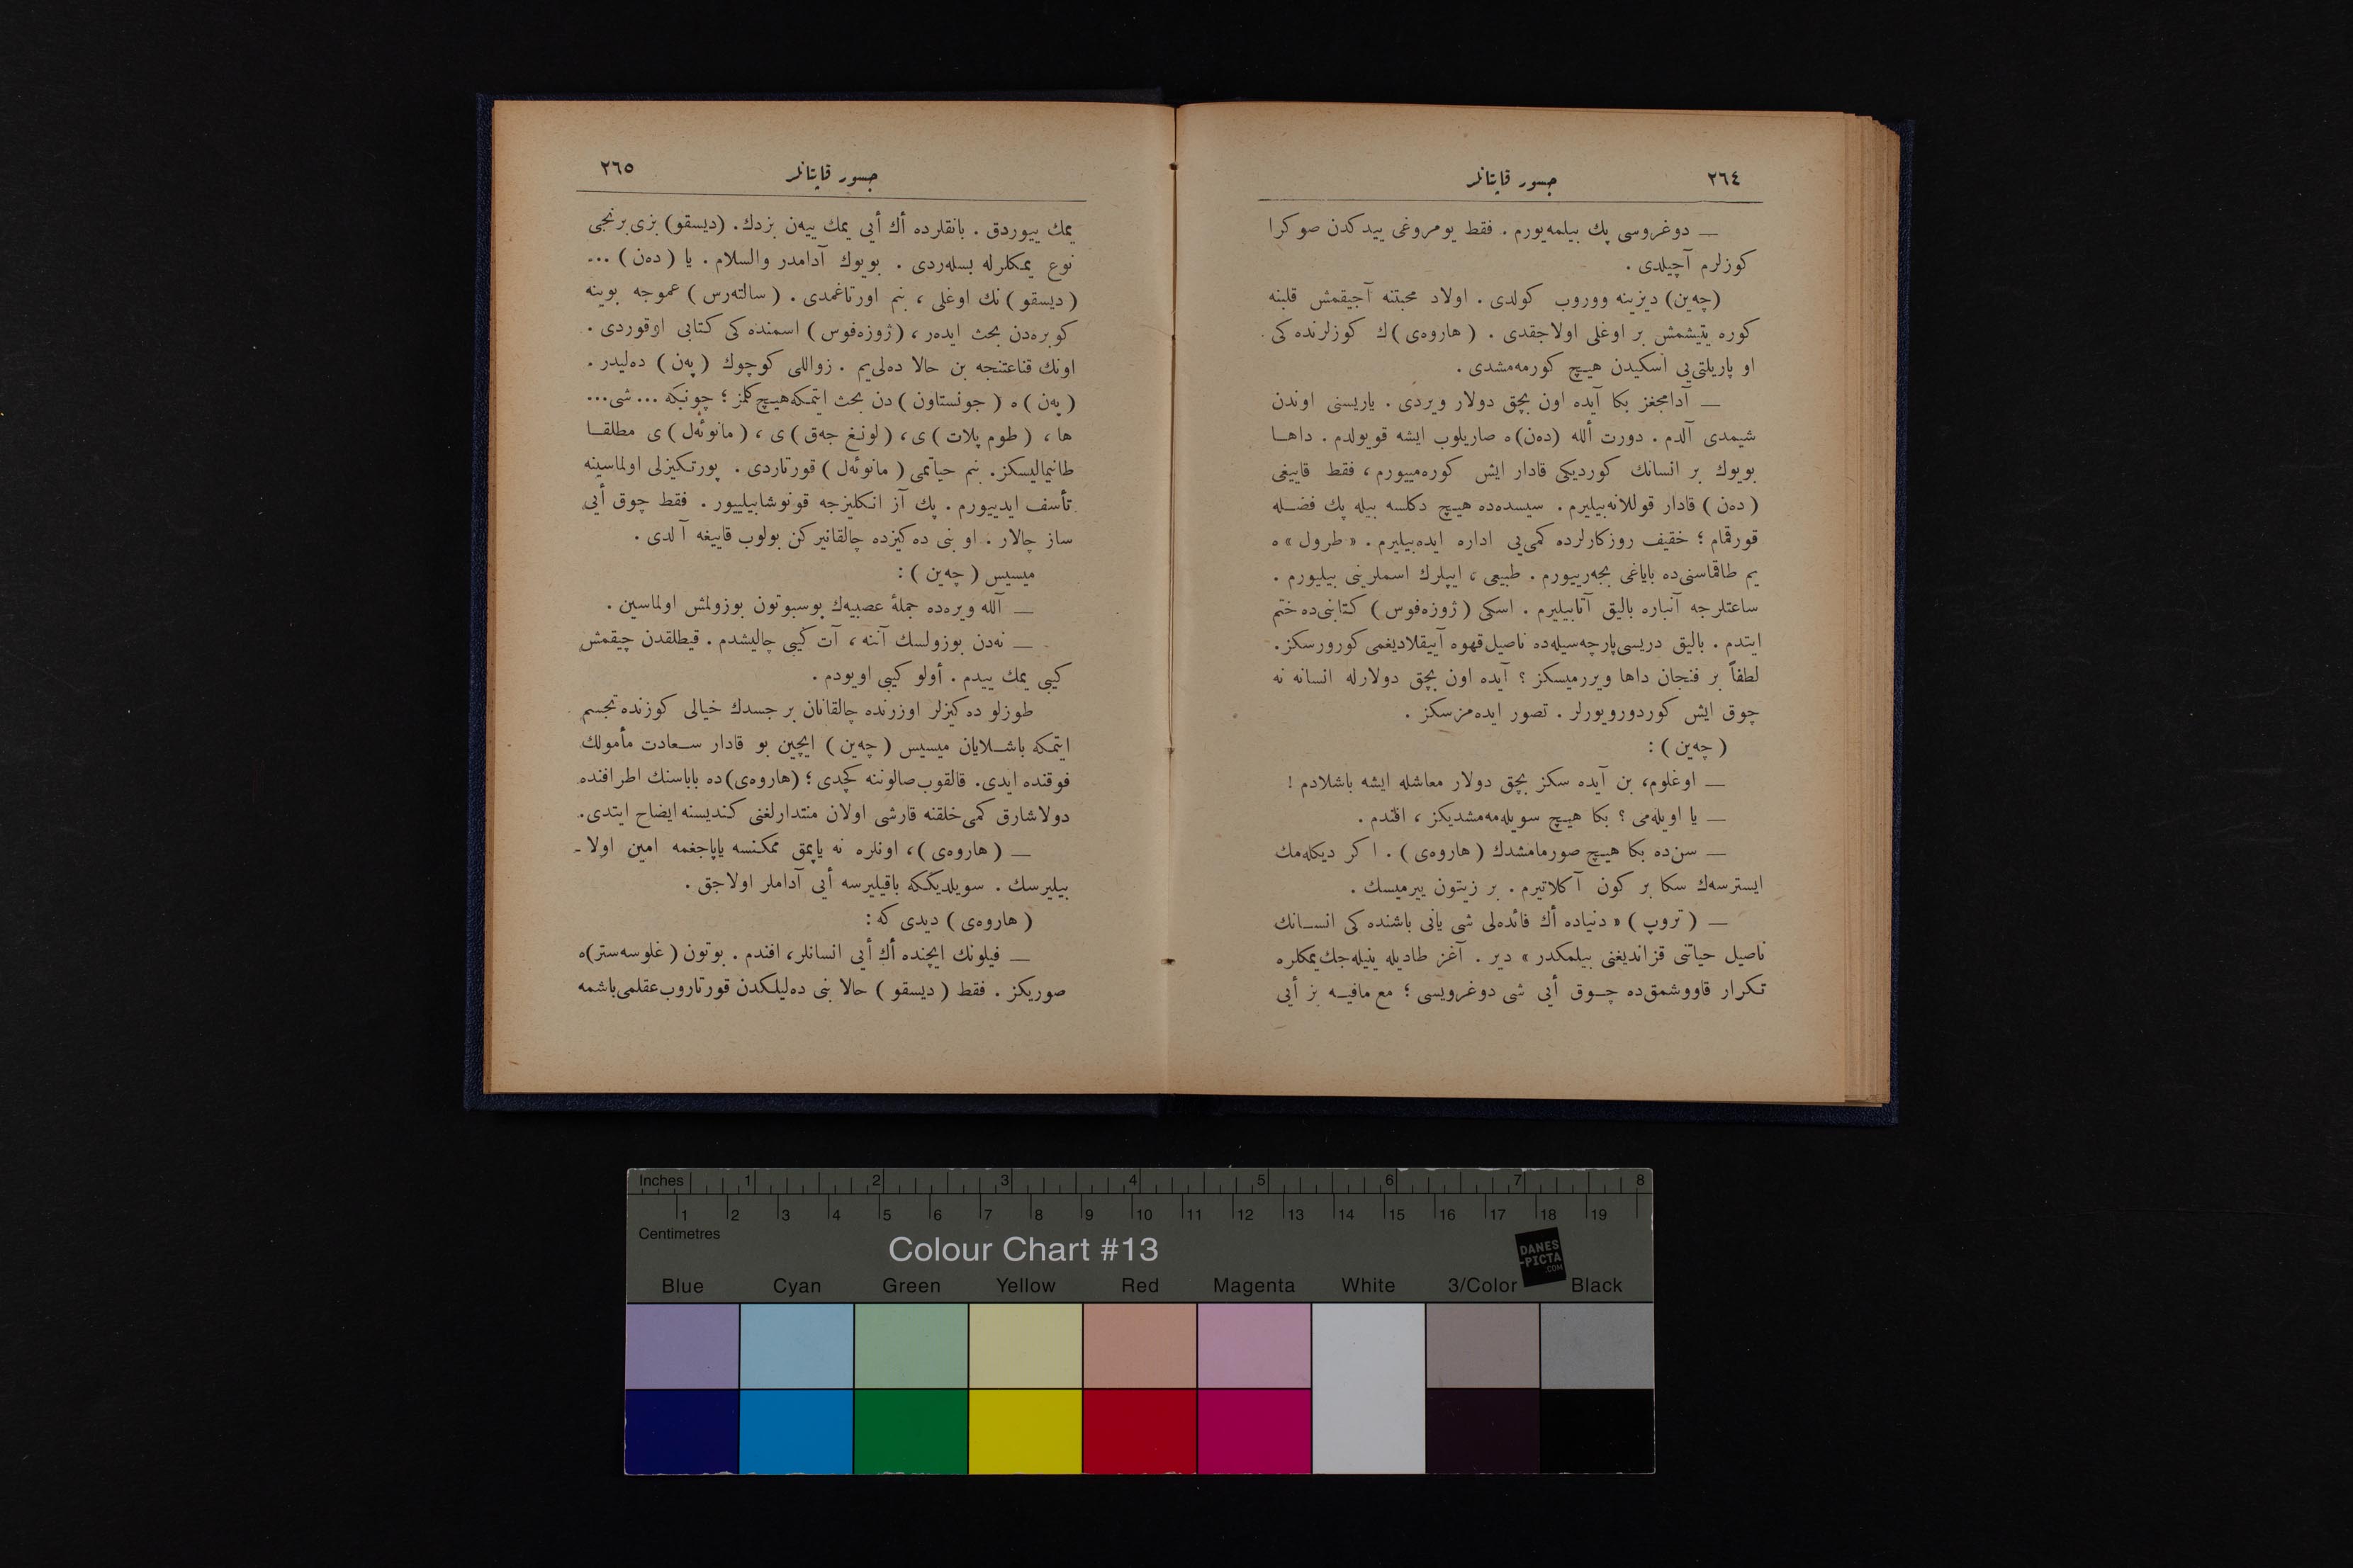 ٢٦٤
جسور قاپتانلر
— دوغروسی پك بیلمه‌یورم . فقط یومروغی ییدكدن صوكرا
كوزلرم آچیلدی .
(چه‌ین) دیزینه ووروب كولدی . اولاد محبتنه آجیقمش قلبنه
كوره یتیشمش بر اوغلی اولاجقدی . (هاروه‌ی)ك كوزلرنده كی
او پاریلتی‌یی اسكیدن هیچ كورمه‌مشدی .
— آدامجغز بكا آیده اون بچق دولار ویردی . یاریسنی اوندن
شیمدی آلدم . دورت أللە (ده‌ن)ه صاریلوب ایشه قویولدم . داها
بویوك بر انسانك كوردیكی قادار ایش كوره‌مییورم ، فقط قاییغی
(ده‌ن) قادار قوللانه‌بیلیرم . سیسده‌ده هیچ دكلسه بیله پك فضله
قورقمام ؛ خفیف روزكارلرده كمی‌یی اداره ایده‌بیلیرم . « طرول » ه
یم طاقماسنی‌ده بایاغی بجه‌رییورم . طبیعی ، ایپلرك اسملرینی بیلیورم .
ساعتلرجه آنباره بالیق آتابیلیرم . اسكی (ژوزه‌فوس) كتابنی‌ده ختم
ایتدم . بالیق دریسی پارچه‌سیله‌ده ناصیل قهوه آییقلادیغمی كورورسكز .
لطفاً بر فنجان داها ویررمیسكز ؟ آیده اون بچق دولارله انسانه نه
چوق ایش كوردورویورلر . تصور ایده‌مزسكز .
(چه‌ین) :
— اوغلوم، بن آیده سكز بچق دولار معاشله ایشه باشلادم !
— یا اویله‌می ؟ بكا هیچ سویله‌مه‌مشدیكز ، افندم .
— سن‌ده بكا هیچ صورمامشدك (هاروه‌ی) . اكر دیكله‌مك
ایسترسه‌ك سكا بر كون آكلاتیرم . بر زیتون ییرمیسك .
— (تروپ) « دنیاده أك فائده‌لی شی یانی باشنده كی انسانك
ناصیل حیاتنی قزاندیغنی بیلمكدر » دیر . آغز طادیله ینیله‌جك یمكلره
تكرار قاووشمق‌ده چوق أیی شی دوغرویسی ؛ مع مافیه بز أیی
٢٦٥
جسور قاپتانلر
یمك ییوردق . بانقلرده أك أیی یمك ییه‌ن بزدك. (دیسقو) بزی برنجی
نوع یمكلرله بسله‌ردی . بویوك آدامدر والسلام . یا (ده‌ن) ...
(دیسقو) نك اوغلی ، بنم اورتاغمدی . (سالته‌رس) عموجه بوینه
كوبره‌دن بحث ایده‌ر ، (ژوزه‌فوس) اسمنده كی كتابی اوقوردی .
اونك قناعتنجه بن حالا ده‌لی‌یم . زواللی كوچوك (په‌ن) ده‌لیدر .
(په‌ن) ه (جونستاون) دن بحث ایتمكه هیچ كلمز ؛ چونكه ... شی...
ها، (طوم پلات) ی، (لونغ جه‌ق) ی ، (مانوئه‌ل) ی مطلقا
طانیمالیسكز. بنم حیاتمی (مانوئه‌ل) قورتاردی . پورتكیزلی اولماسینه
تأسف ایدییورم . پك آز انكلیزجه قونوشابیلییور . فقط چوق أیی
ساز چالار . او بنی ده‌كیزده چالقانیركن بولوب قاییغه آلدی .
میسیس (چه‌ین) :
— آللە ویره‌ده جملۀ عصبیه‌ك بوسبوتون بوزولمش اولماسین .
— نه‌دن بوزولسك آننه ، آت كیبی چالیشدم . قیطلقدن چیقمش
كیبی یمك ییدم . أولو كیبی اویودم .
طوزلو ده‌كیزلر اوزرنده چالقانان بر جسدك خیالی كوزنده تجسم
ایتمكه باشلایان میسیس (چه‌ین) ایچین بو قادار سعادت مأمولك
فوقنده ایدی. قالقوب صالوننه كچدی ؛ (هاروه‌ی)ده باباسنك اطرافنده
دولاشارق كمی خلقنه قارشی اولان منتدارلغنی كندیسنه ایضاح ایتدی.
— (هاروه‌ی)، اونلره نه یاپمق ممكنسه یاپاجغمه امین اولا ـ
بیلیرسك . سویلدیگكه باقیلیرسه أیی آداملر اولاجق .
(هاروه‌ی) دیدی كه :
— فیلونك ایچنده أك أیی انسانلر، افندم . بوتون (غلوسه‌ستر)ه
صوریكز . فقط (دیسقو) حالا بنی ده‌لیلكدن قورتاروب عقلمی باشمه
Inches 1 2 3 4 5 6 7 8
1 2 3 4 5 6 7 8 9 10 11 12 13 14 15 16 17 18 19
Centimetres
Colour Chart #13
DANES
-PICTA
.COM
Blue Cyan Green Yellow Red Magenta White 3/Color Black